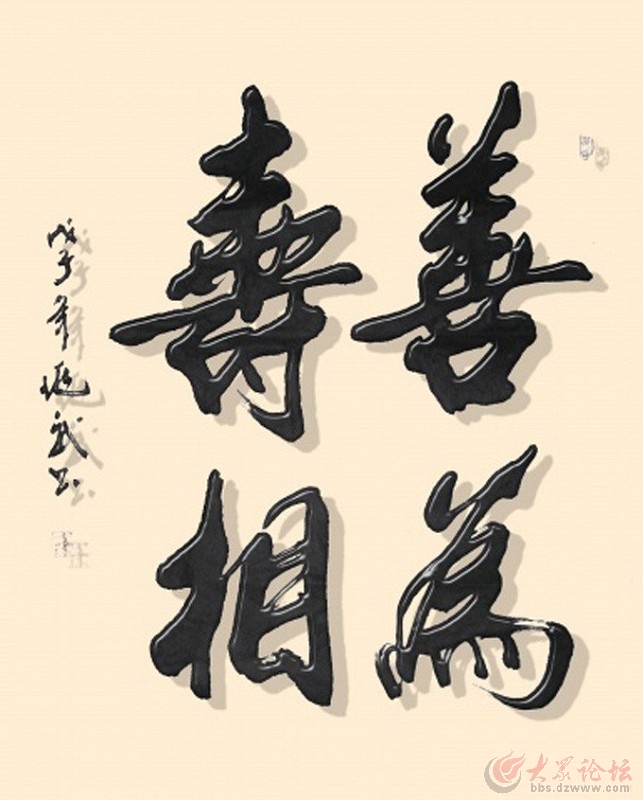 善為
壽相
戊子年 武书
大众论坛
bbs.dzwww.com